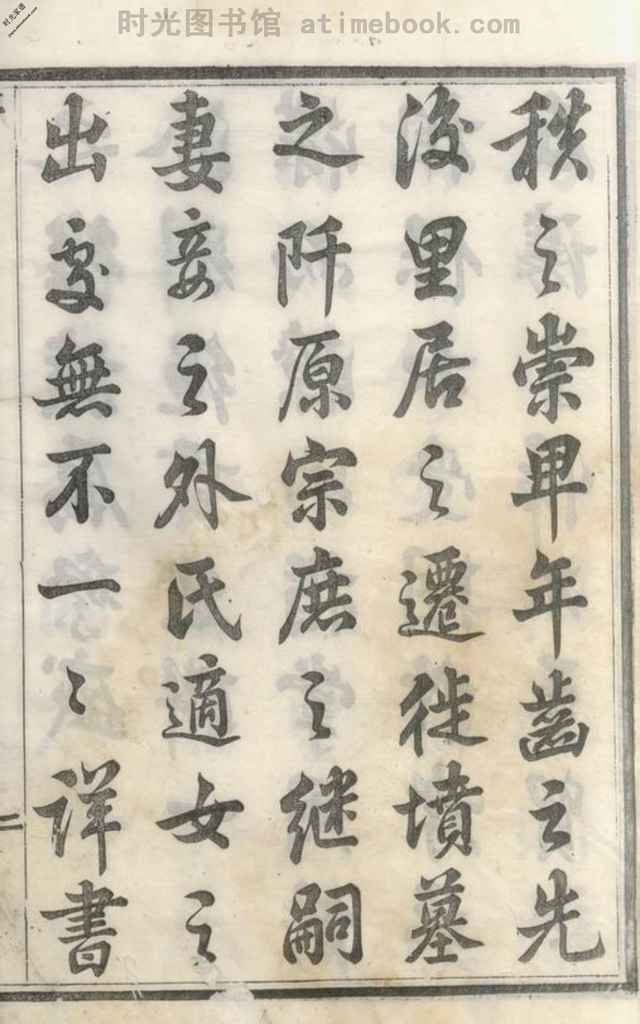 时光图书馆 atimebook.com
秩之崇卑年齒之先
後里居之遷徙墳墓
之阡原宗庶之继嗣
妻妾之外氏適女之
出處無不一〻詳書
二